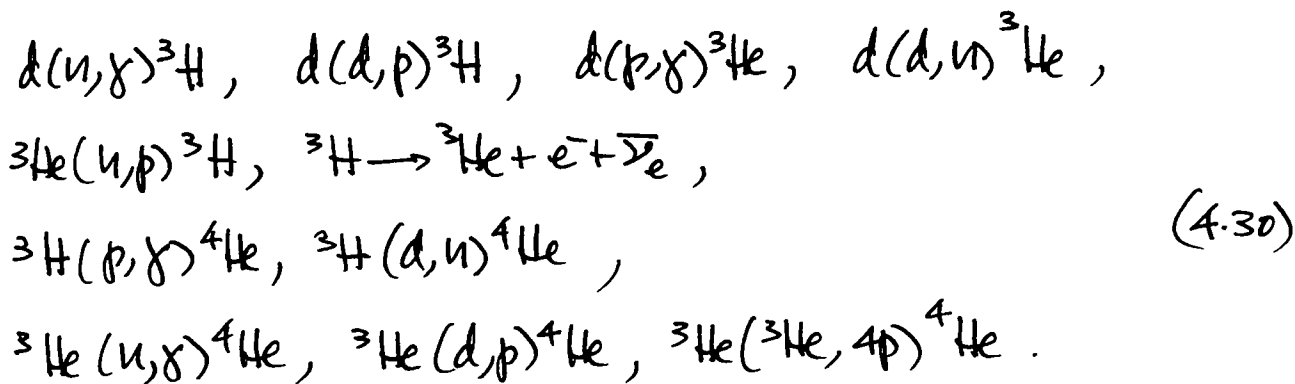 d(n,γ)³H, d(d,p)³H, d(p,γ)³He, d(d,n)³He,
³He(n,p)³H, ³H → ³He + e⁻ + ν̅ₑ,
(4.30)
³H(p,γ)⁴He, ³H(d,n)⁴He,
³He(n,γ)⁴He, ³He(d,p)⁴He, ³He(³He, 4p)⁴He.